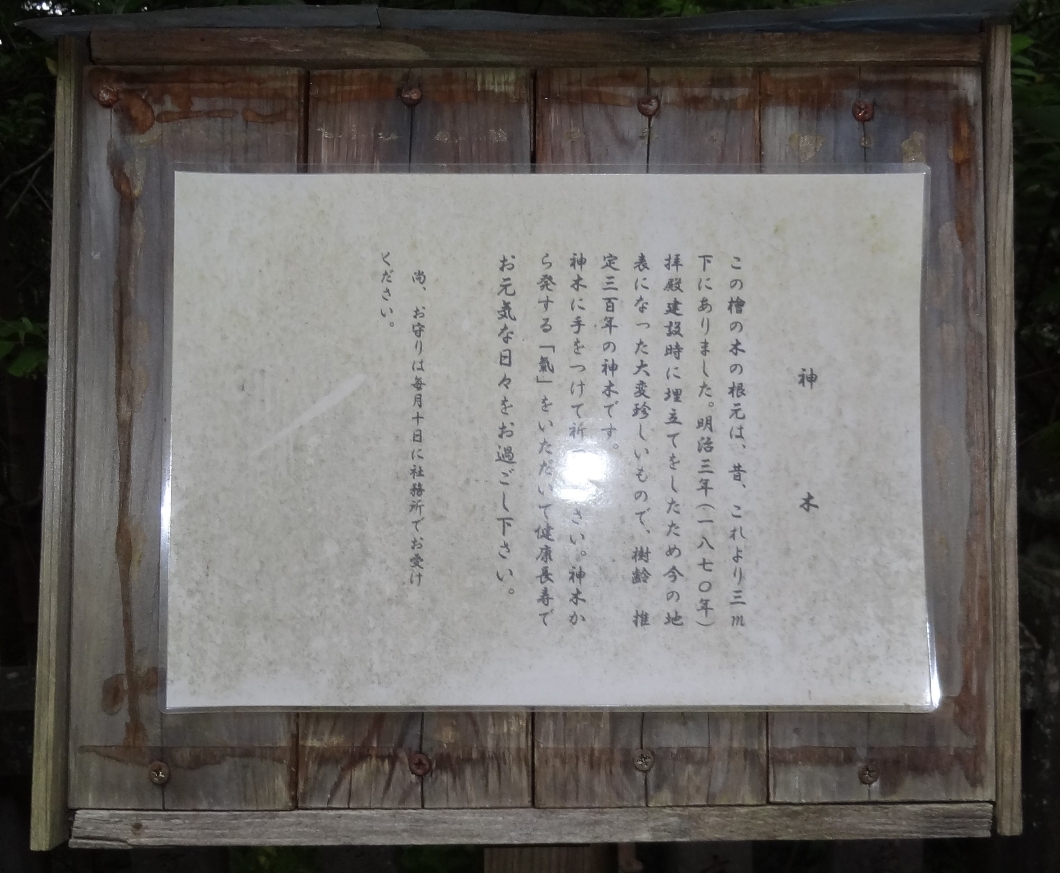 神木
この檜の木の根元は、昔、これより三m
下にありました。明治三年(一八七〇年)
拝殿建設時に埋立てをしたため今の地
表になった大変珍しいもので、樹齢 推
定三百年の神木です。
神木に手をつけて祈 さい。神木か
ら発する「氣」をいただいて健康長寿で
お元気な日々をお過ごし下さい。
尚、お守りは毎月十日に社務所でお受け
ください。